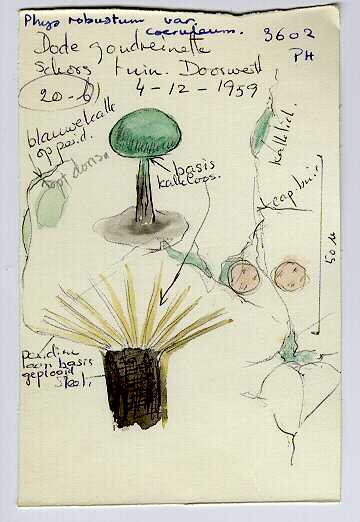 Phys robustum var.
coeruleum.
3602
PH
Dode goudreinette
Schors tuin. Doorwerth
20-6 4-12-1959
blauwe kalk
op perid.
basis
kalkloos.
kalklid.
cap
50 µ
peridium
aan basis
geplooid
steel.